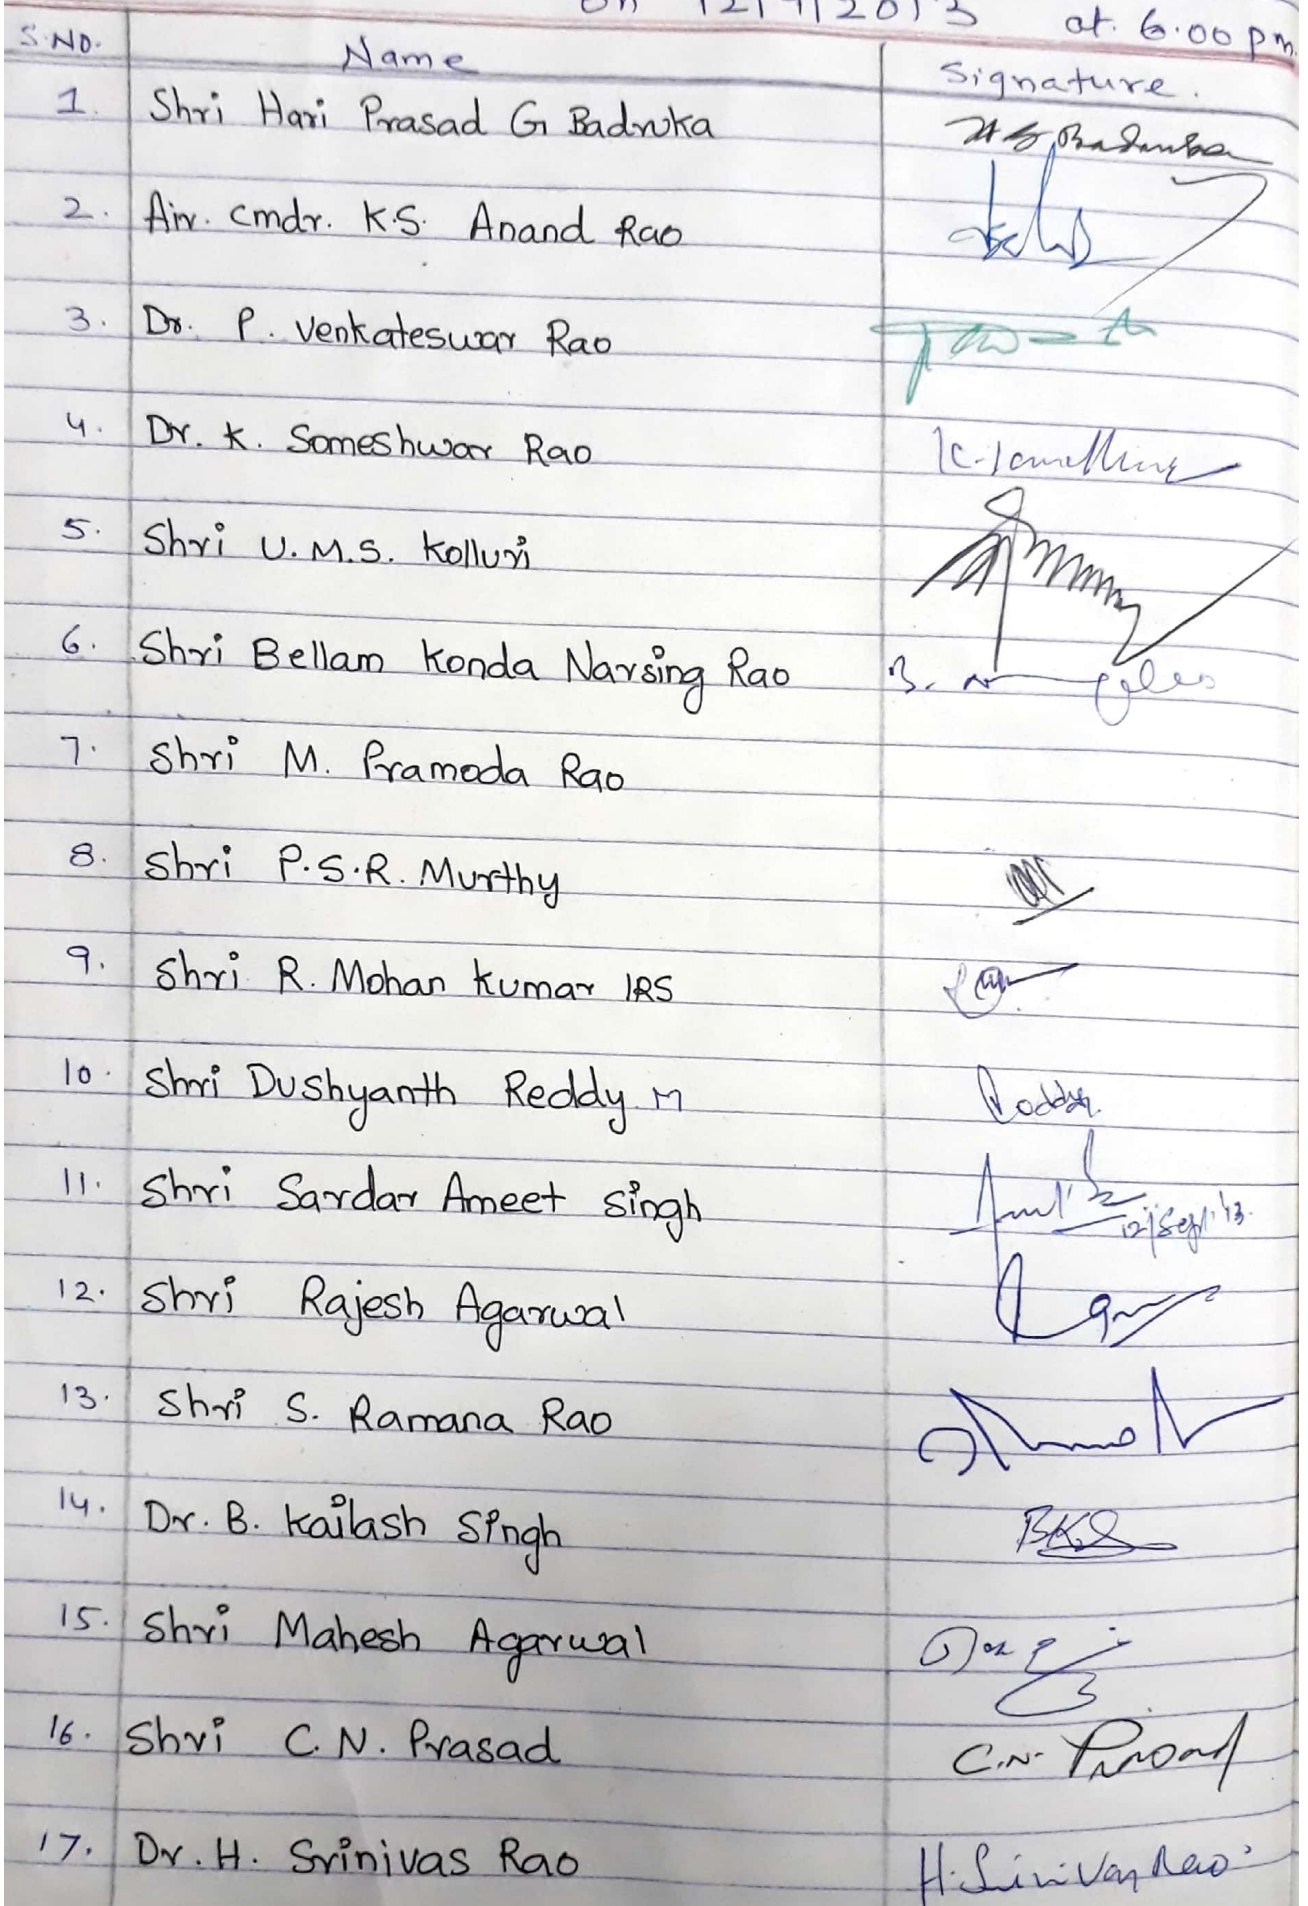 on 12/9/2013 at. 6.00 pm.
S.NO. Name Signature.
1. Shri Hari Prasad G Badruka H G Badruka
2. Air. cmdr. K.S. Anand Rao
3. Dr. P. Venkateswar Rao
4. Dr. K. Someshwar Rao
5. Shri U.M.S. Kolluri
6. Shri Bellam Konda Narsing Rao
7. Shri M. Pramoda Rao
8. Shri P.S.R. Murthy
9. Shri R. Mohan Kumar IRS
10. Shri Dushyanth Reddy M
11. Shri Sardar Ameet Singh 12/Sept.'13.
12. Shri Rajesh Agarwal
13. Shri S. Ramana Rao
14. Dr. B. Kailash Singh BKS
15. Shri Mahesh Agarwal
16. Shri C.N. Prasad C.N. Prasad
17. Dr. H. Srinivas Rao H. Srinivas Rao